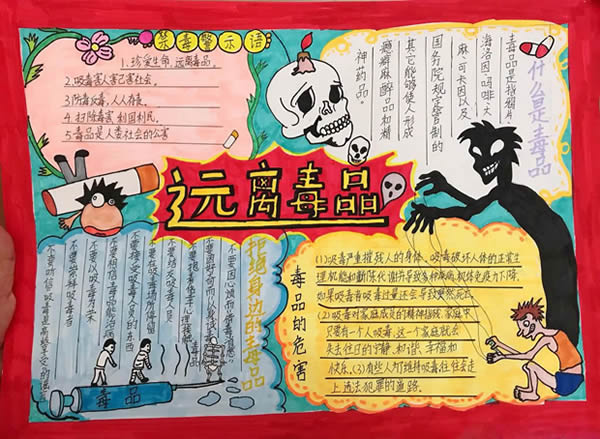 禁毒警示语
1.珍爱生命,远离毒品。
2.吸毒害人害己害社会。
3.防毒反毒,人人有责。
4.扫除毒害,利国利民。
5.毒品是人类社会的公害
什么是毒品
毒品是指鸦片、
海洛因、吗啡、大
麻、可卡因以及
国务院规定管制的
其它能够使人形成
瘾癖麻醉品和精
神药品。
远离毒品
拒绝身边的毒品
不要因心烦而
不要因好奇而以身试毒
不要抱着侥幸心理接触毒品
不要结交吸毒人员
不要在吸毒场所停留
不要接受吸毒人员的东西
不要相信毒品能治病
不要以吸毒为荣
不要崇拜吸毒者
不要听信吸毒是高级享受的谣言
毒品
毒品的危害
(1)吸毒严重摧残人的身体。吸毒破坏人体的正常生
理机能和新陈代谢,并导致多种疾病,机体免疫力下降。
如果吸毒有吸毒过量还会导致突然死去。
(2)吸毒对家庭成员的精神摧残。家庭中
只要有一个人吸毒,这一个家庭就会
失去往日的宁静、和谐、幸福和
快乐。(3)有些人为维持吸毒往往会走
上违法犯罪的道路。